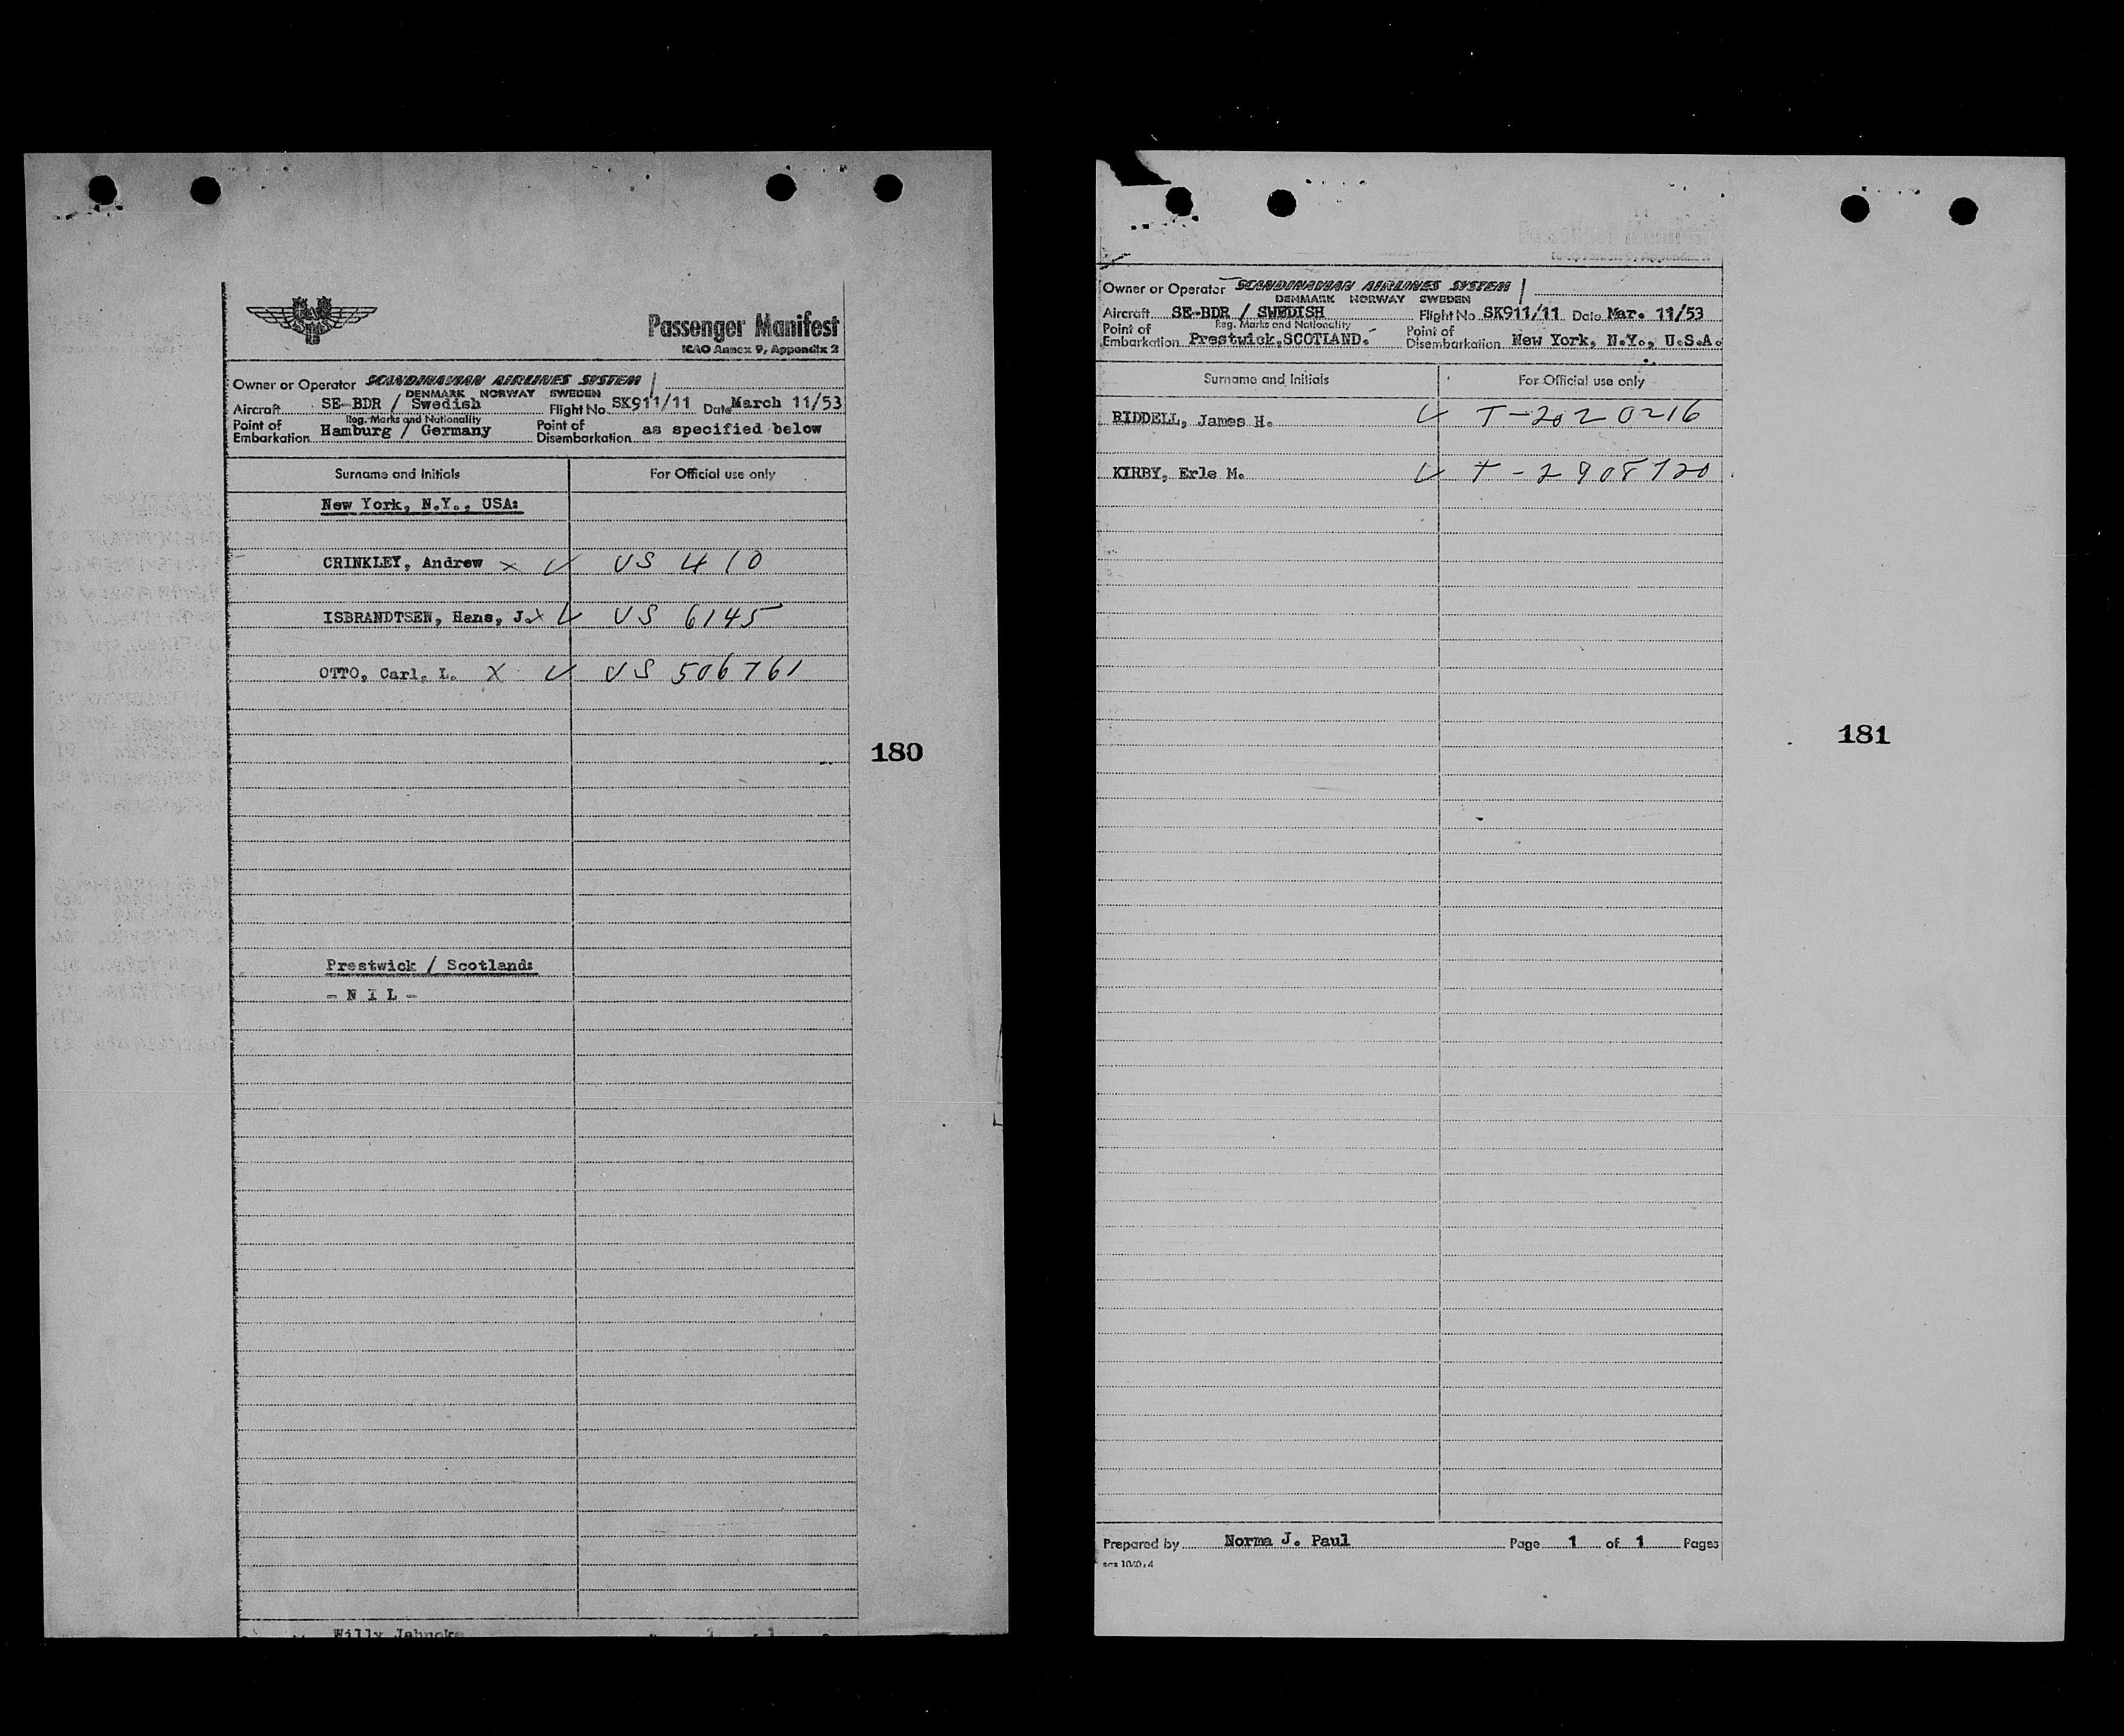 SAS
Passenger Manifest
ICAO Annex 9, Appendix 2
Owner or Operator SCANDINAVIAN AIRLINES SYSTEM
DENMARK NORWAY SWEDEN
Aircraft SE-BDR / Swedish Flight No. SK911/11 Date March 11/53
Reg. Marks and Nationality
Point of Embarkation Hamburg / Germany Point of Disembarkation as specified below
Surname and Initials For Official use only
New York, N.Y., USA:
CRINKLEY, Andrew x ✓ US 410
ISBRANDTSEN, Hans, J. x ✓ US 6145
OTTO, Carl, L. X ✓ US 506761
180
Prestwick / Scotland:
- N I L -
Willy Jahncke
Owner or Operator SCANDINAVIAN AIRLINES SYSTEM
DENMARK NORWAY SWEDEN
Aircraft SE-BDR / SWEDISH Flight No SK911/11 Date Mar. 11/53
Reg. Marks and Nationality
Point of Embarkation Prestwick.SCOTLAND. Point of Disembarkation New York, N.Y., U.S.A.
Surname and Initials For Official use only
RIDDELL, James H. ✓ T-2020216
KIRBY, Erle M. ✓ T-2908720
181
Prepared by Norma J. Paul Page 1 of 1 Pages